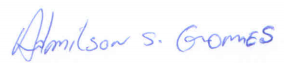 Admilson S. Gomes